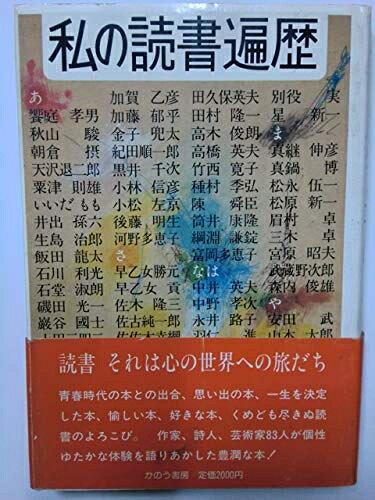 私の読書遍歴
あ
饗庭 孝男
秋山 駿
朝倉 摂
天沢退二郎
粟津 則雄
いいだ もも
井出 孫六
生島 治郎
飯田 龍太
石川 利光
石堂 淑朗
磯田 光一
巌谷 國士
加賀 乙彦
加藤 郁乎
金子 兜太
紀田順一郎
黒井 千次
小林 信彦
小松 左京
後藤 明生
河野多恵子
さ
早乙女勝元
早乙女 貢
佐木 隆三
佐古純一郎
田久保英夫
田村 隆一
高木 俊朗
高橋 英夫
竹西 寛子
種村 季弘
陳 舜臣
筒井 康隆
綱淵 謙錠
富岡多恵子
なは
中井 英夫
中野 孝次
永井 路子
別役 実
星 新一
ま
真継 伸彦
真鍋 博
松永 伍一
松原 新一
眉村 卓
三木 卓
宮原 昭夫
武蔵野次郎
森内 俊雄
や
安田 武
読書 それは心の世界への旅だち
青春時代の本との出合、思い出の本、一生を決定
した本、愉しい本、好きな本、くめども尽きぬ読
書のよろこび。 作家、詩人、芸術家83人が個性
ゆたかな体験を語りあかした豊潤な本!
かのう書房/定価2000円